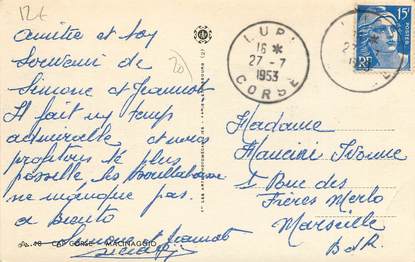 12€
amitié et
Souvenir de
Simone et Jeannot
Il fait un temps
admirable et nous
profitons le plus
possible les bouillabaisse
ne manque pas.
a Bientôt
Simone et Jeannot
No. 18 CAP CORSE - MACINAGGIO
LURI
16 *
27 - 7
1953
CORSE
15F
POSTES
RF
Madame
Mancini Yvonne
1 Rue des
Frères Merlo
Marseille
BdR.